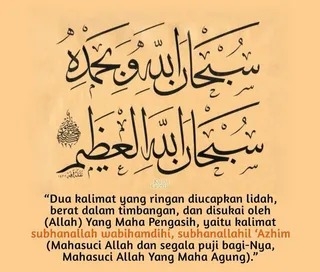 سُبْحَانَ اللَّهِ وَبِحَمْدِهِ
سُبْحَانَ اللَّهِ الْعَظِيمِ
“Dua kalimat yang ringan diucapkan lidah,
berat dalam timbangan, dan disukai oleh
(Allah) Yang Maha Pengasih, yaitu kalimat
subhanallah wabihamdihi, subhanallahil ‘Azhim
(Mahasuci Allah dan segala puji bagi-Nya,
Mahasuci Allah Yang Maha Agung).”